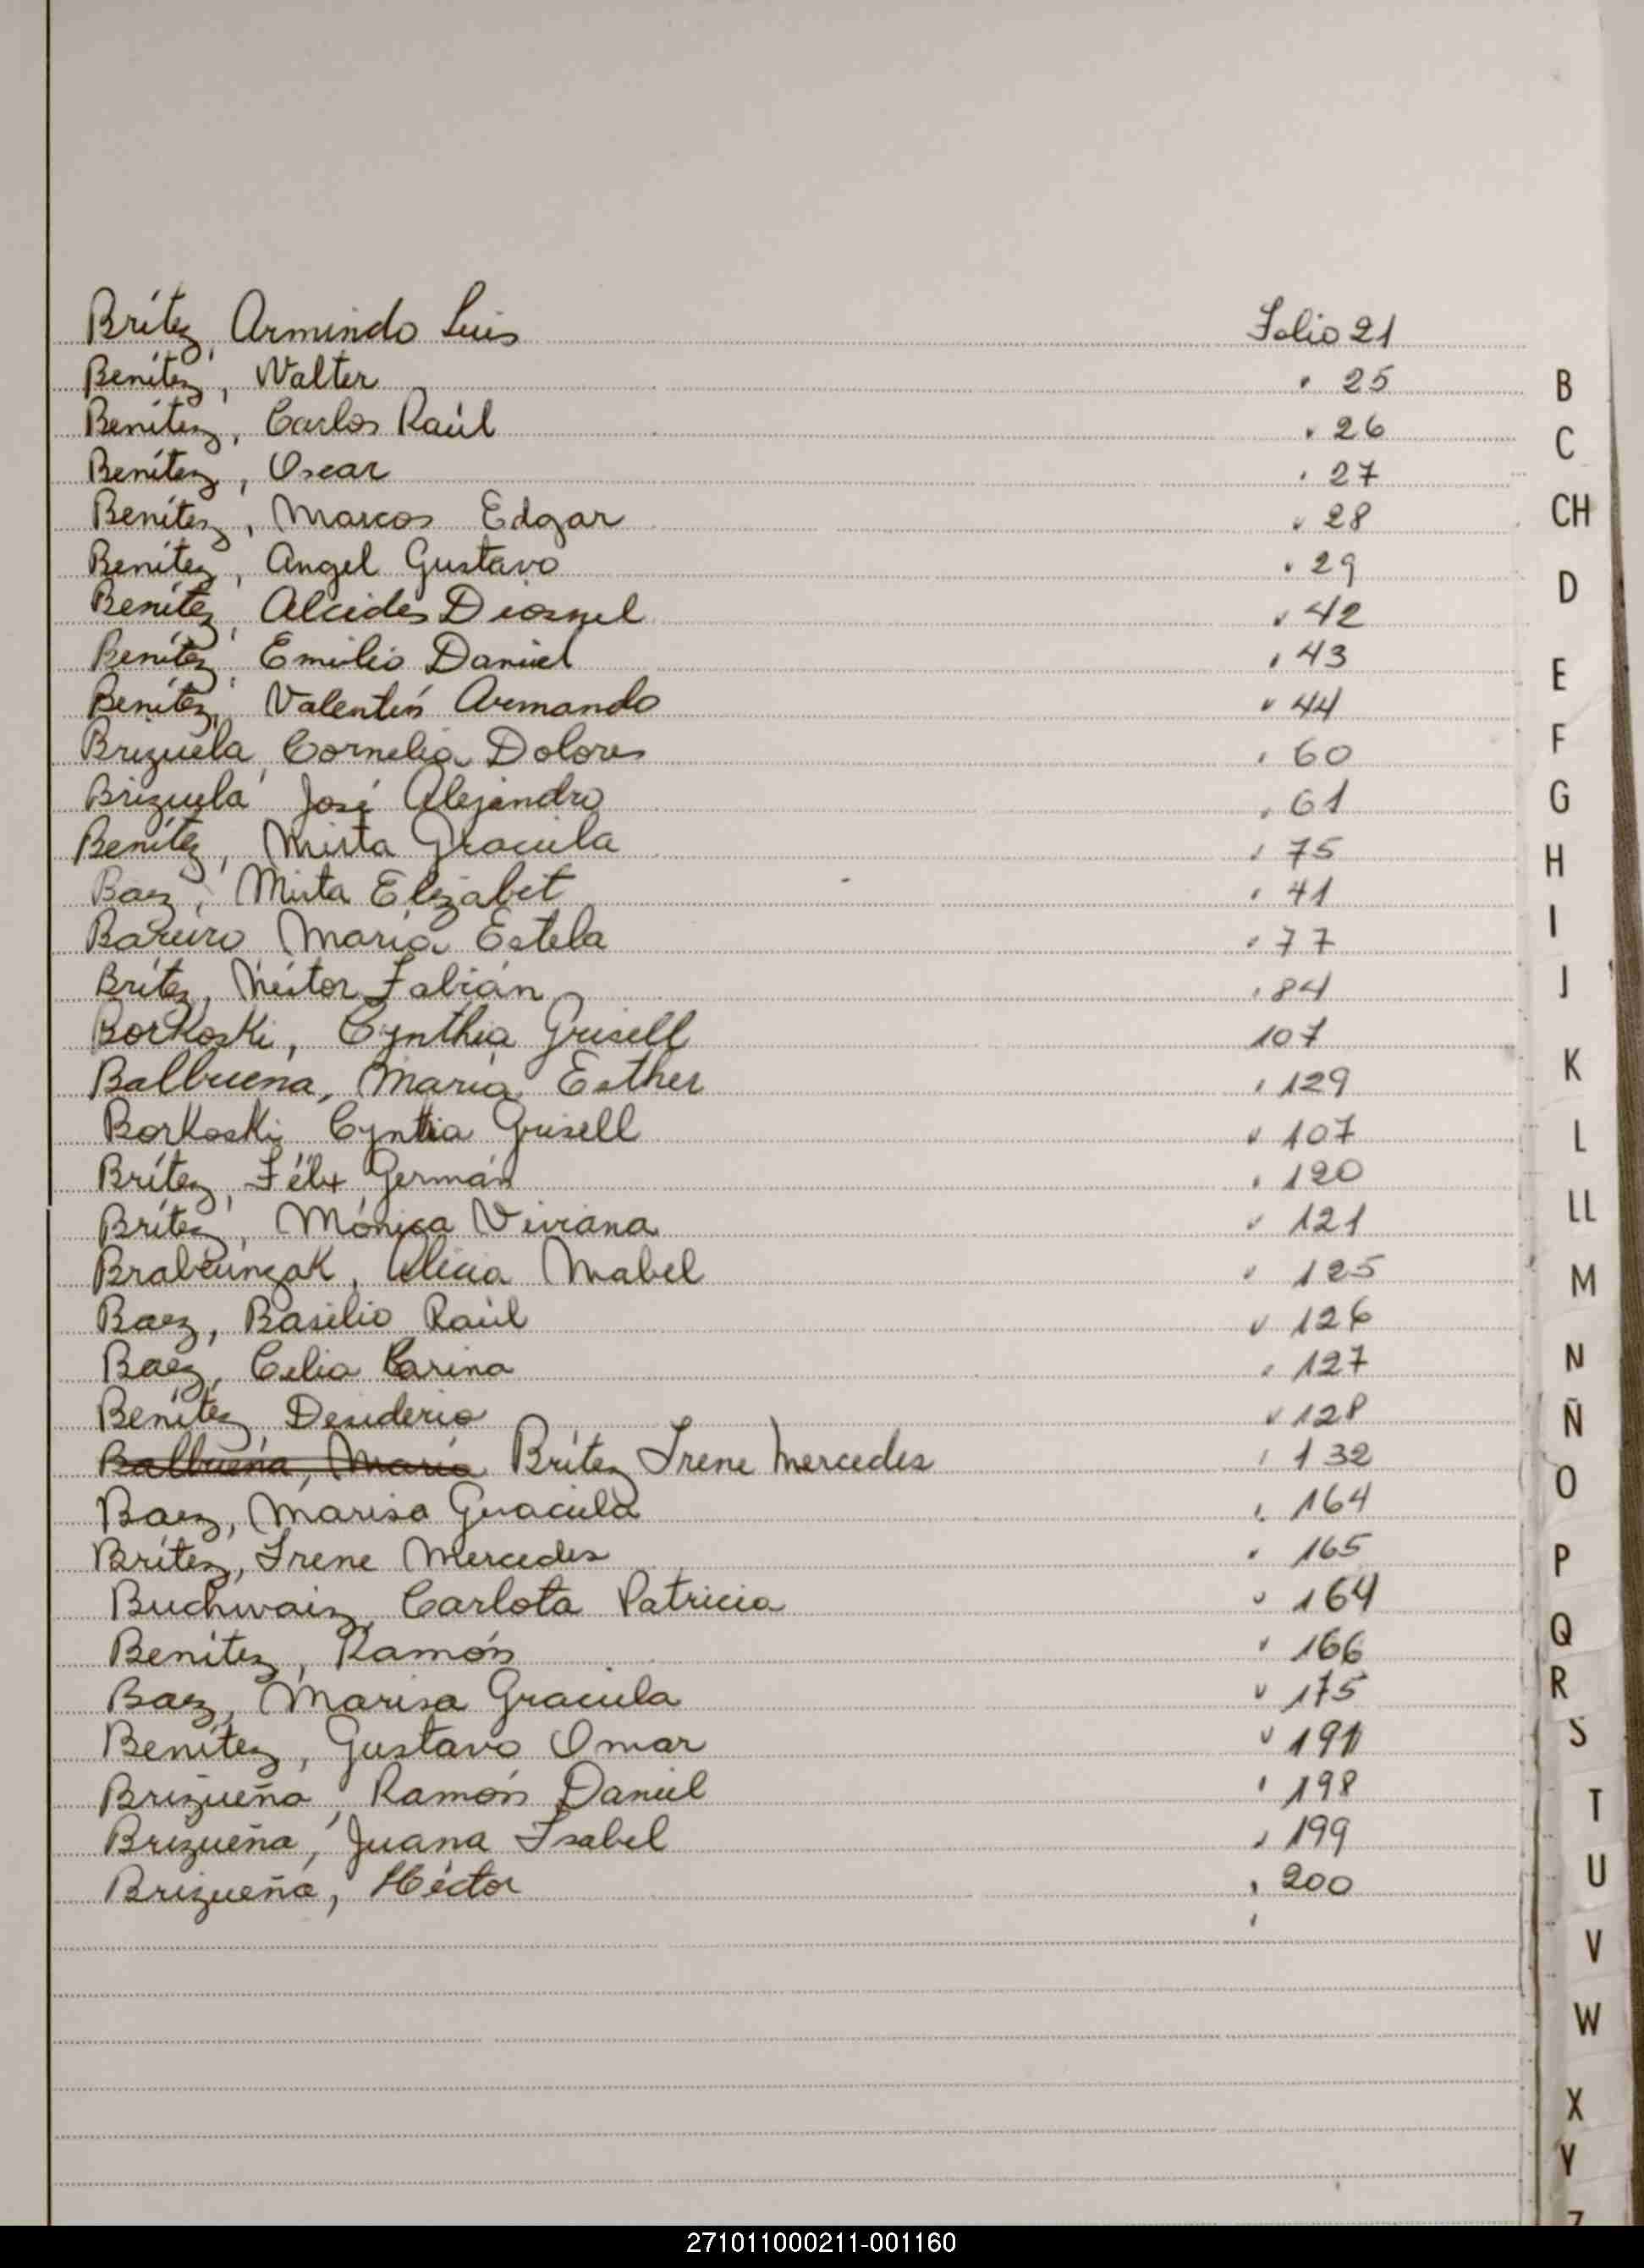 Brítez, Armindo Luis Folio 21
Benítez, Walter " 25
Benítez, Carlos Raúl " 26
Benítez, Oscar " 27
Benítez, Marcos Edgar " 28
Benítez, Angel Gustavo " 29
Benítez, Alcides Diosnel " 42
Benítez, Emilio Daniel " 43
Benítez, Valentín Armando " 44
Brizuela, Cornelia Dolores " 60
Brizuela, José Alejandro " 61
Benítez, Mirta Graciela " 75
Baez, Mirta Elizabet " 41
Bareiro María Estela " 77
Brítez, Néstor Fabián " 84
Borkoski, Cynthia Grisell 107
Balbuena, María Esther " 129
Borkoski, Cyntia Grisell " 107
Brítez, Félix Germán " 120
Brítez, Mónica Viviana " 121
Alicia Mabel " 125
Baez, Basilio Raúl " 126
Baez, Celia Carina " 127
Benítez, Desiderio " 128
Balbuena, María Brítez Irene Mercedes " 132
Baez, Marisa Graciela " 164
Brítez, Irene Mercedes " 165
Buchwaiz, Carlota Patricia " 164
Benítez, Ramón " 166
Baez, Marisa Graciela " 175
Benítez, Gustavo Omar " 191
Brizueña, Ramón Daniel " 198
Brizueña, Juana Isabel " 199
Brizueña, Héctor " 200
"
B
C
CH
D
E
F
G
H
I
J
K
L
LL
M
N
Ñ
O
P
Q
R
S
T
U
V
W
X
Y
Z
271011000211-001160